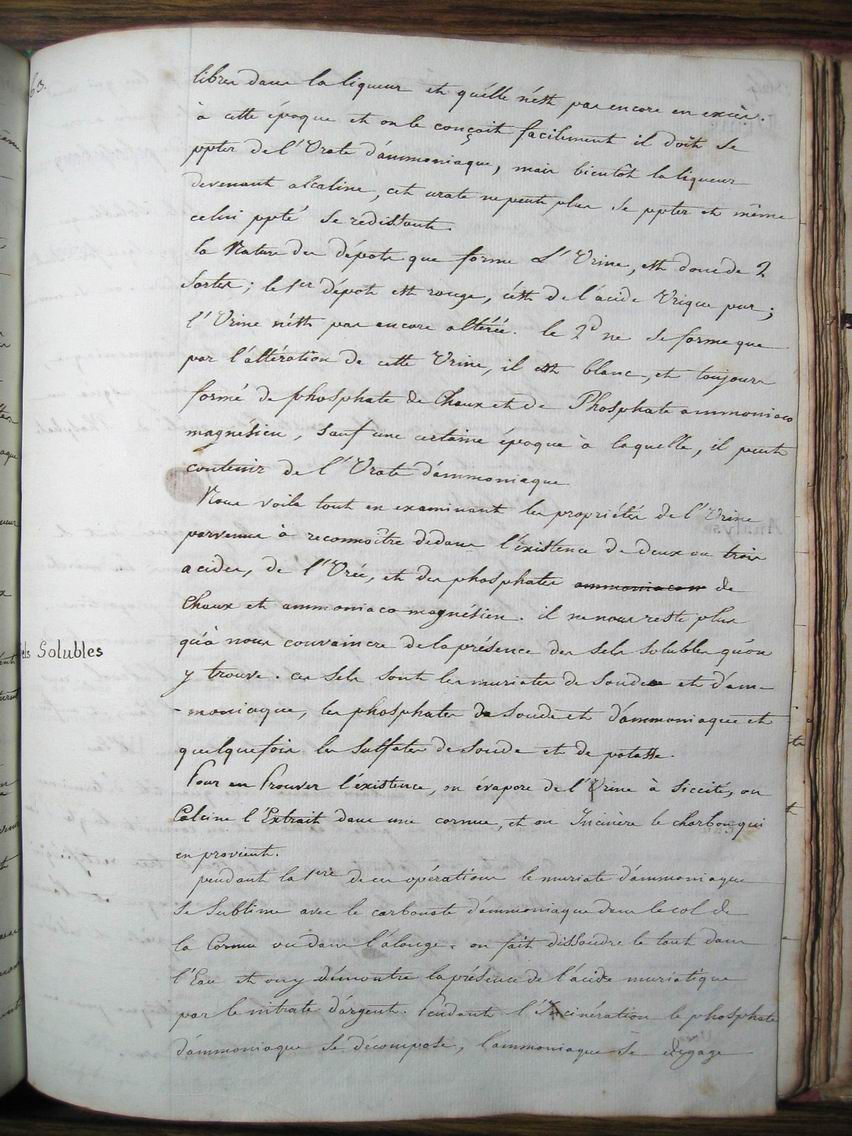 63.
libres dans la liqueur et qu'elle n'est pas encore en excès.
à cette époque et on le conçoit facilement il doit se
ppter de l'Urate d'ammoniaque, mais bientôt la liqueur
devenant alcaline, cet urate ne peut plus se ppter et même
celui ppté se redissout.
la Nature des dépots que forme L'Urine, est donc de 2
Sortes; le 1er dépot est rouge, c'est de l'acide Urique pur;
l'Urine n'est pas encore altérée. le 2d ne se forme que
par l'altération de cette Urine, il est blanc, et toujours
formé de phosphate de Chaux et de Phosphate ammoniaco
magnésien, sauf une certaine époque à laquelle, il peut
contenir de l'Urate d'ammoniaque
Nous voila tout en examinant les propriétés de l'Urine
parvenus à reconnoître dedans l'éxistence de deux ou trois
acides, de l'Urée, et des phosphates ammoniacaux de
Chaux et ammoniaco magnésien. il ne nous reste plus
qu'à nous convaincre de la présence des sels solubles qu'on
els Solubles
y trouve. ces sels sont les muriates de Soude et d'am-
-moniaque, les phosphates de Soude et d'ammoniaque et
quelquefois les sulfates de soude et de potasse.
Pour en Prouver l'éxistence, on évapore de l'Urine à siccité, on
Calcine l'Extrait dans une cornue, et on Incinère le charbon qui
en provient.
pendant la 1ere de ces opérations le muriate d'ammoniaque
se sublime avec le carbonate d'ammoniaque dans le col de
la Cornue ou dans l'alonge. on fait dissoudre le tout dans
l'Eau et on y démontre la présence de l'acide muriatique
par le nitrate d'argent. Pendant l'Incinération le phosphate
d'ammoniaque se décompose, l'ammoniaque se dégage